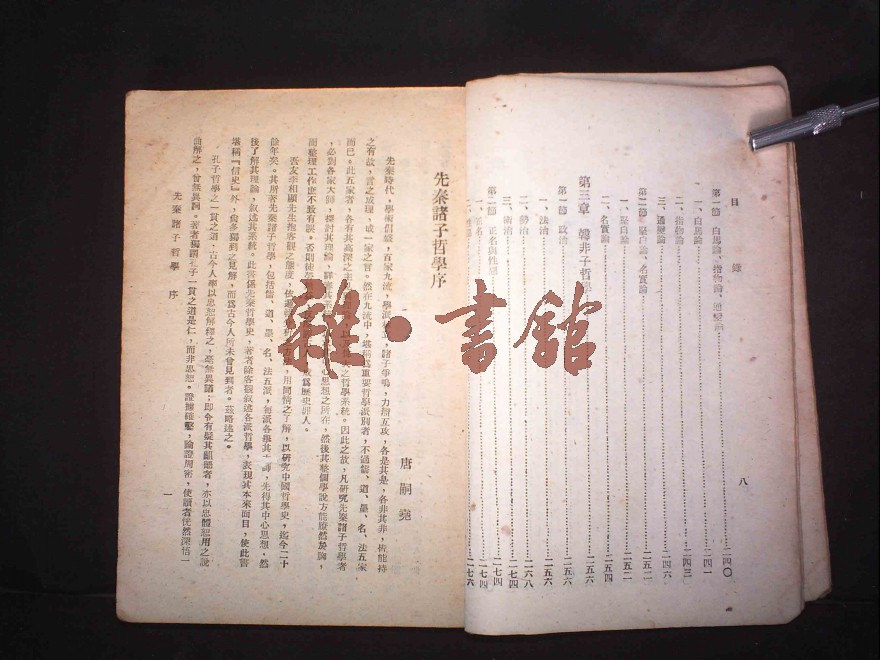 目 錄 八
第一節 白馬論、指物論、通變論 二四〇
一、白馬論 二四一
二、指物論 二四三
三、通變論 二四六
第二節 堅白論、名實論 二五一
一、堅白論 二五二
二、名實論 二五四
第三章 韓非子哲學 二五六
第一節 政治 二五六
一、法治 二五六
二、勢治 二六八
三、術治 二七四
第二節 正名與性惡 二七四
一、正名 二七四
二七六
先秦諸子哲學序
唐嗣堯
先秦時代,學術倡盛,百家九流,學派 立,諸子爭鳴,力闢互攻,各是其是,各非其非,皆能持
之有故,言之成理,成一家之言。然在九流中,堪稱爲重要哲學派別者,不過儒、道、墨、名、法五家
而已。此五家者,各有其高深之 之哲學系統。因此之故,凡研究先秦諸子哲學者
,必對各家大師,探討其理論,詳審其系 心思想之所在,然後其整個學說方能瞭然於胸,
而整理工作庶不致有誤。否則徒勞 成爲歷史罪人。
吾友李相顯先生抱客觀之態度,依邏輯 析方法,用同情之了解,以研究中國哲學史,迄今二十
餘年矣。其所著先秦諸子哲學,包括儒、道、墨、名、法五派,每派各舉其大師,先得其中心思想,然
後了解其理論,敘述其系統。此書係先秦哲學史,著者除客觀敘述各派哲學,表現其本來面目,使此書
堪稱『信史』外,尙多獨到之見解,而爲古今人所未曾見到者。茲略述之。
孔子哲學之一貫之道,古今人率以忠恕解釋之,毫無異議;即令有疑其顢頇者,亦以忠體恕用之說
曲解之,曾無異詞。著者獨謂孔子一貫之道是仁,而非忠恕。證據確鑿,論證周密,使讀者恍然深悟一
先秦諸子哲學 序 一
雜·書館